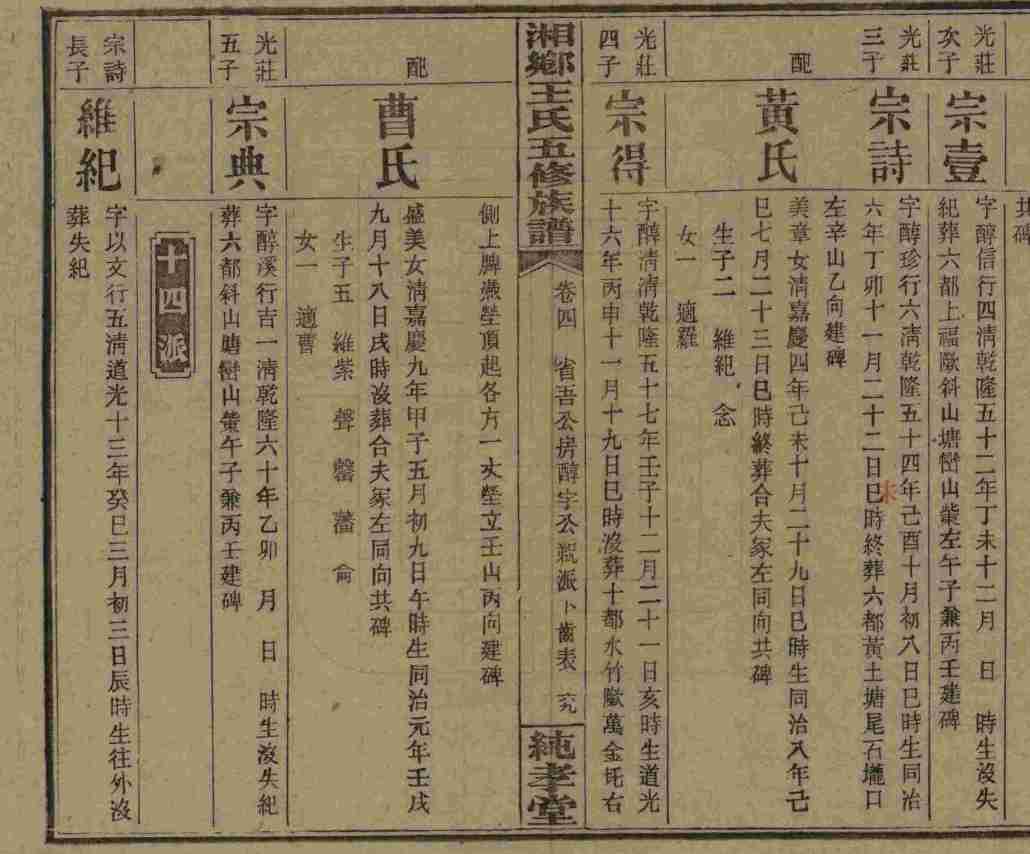 共碑
光莊
次子
宗壹
字醇信行四淸乾隆五十二年丁未十二月　日　時生沒失
紀葬六都上福歐斜山塘巒山螢左午子兼丙壬建碑
光莊
三子
宗詩
字醇珍行六淸乾隆五十四年己酉十月初八日巳時生同治
六年丁卯十一月二十二日巳時終葬六都黃土塘尾石壠口
未
左辛山乙向建碑
配
黃氏
美章女淸嘉慶四年己未十月二十九日巳時生同治八年己
巳七月二十三日巳時終葬合夫冢左同向共碑
生子二　維紀　念
女一　適羅
光莊
四子
宗得
字醇淸淸乾隆五十七年壬子十二月二十一日亥時生道光
十六年丙申十一月十九日巳時沒葬十都水竹歐萬金圫右
湘鄉王氏五修族譜
卷四　省吾公房醇字公親派卜齒表　究
純孝堂
側上牌燕塋頂起各方一丈塋立壬山丙向建碑
配
曹氏
盛美女淸嘉慶九年甲子五月初九日午時生同治元年壬戌
九月十八日戌時沒葬合夫冢左同向共碑
生子五　維紫　聲　馨　藩　侖
女一　適曹
光莊
五子
宗典
字醇溪行吉一淸乾隆六十年乙卯　月　日　時生沒失紀
葬六都斜山塘巒山螢午子兼丙壬建碑
十四派
宗詩
長子
維紀
字以文行五淸道光十三年癸巳三月初三日辰時生往外沒
葬失紀